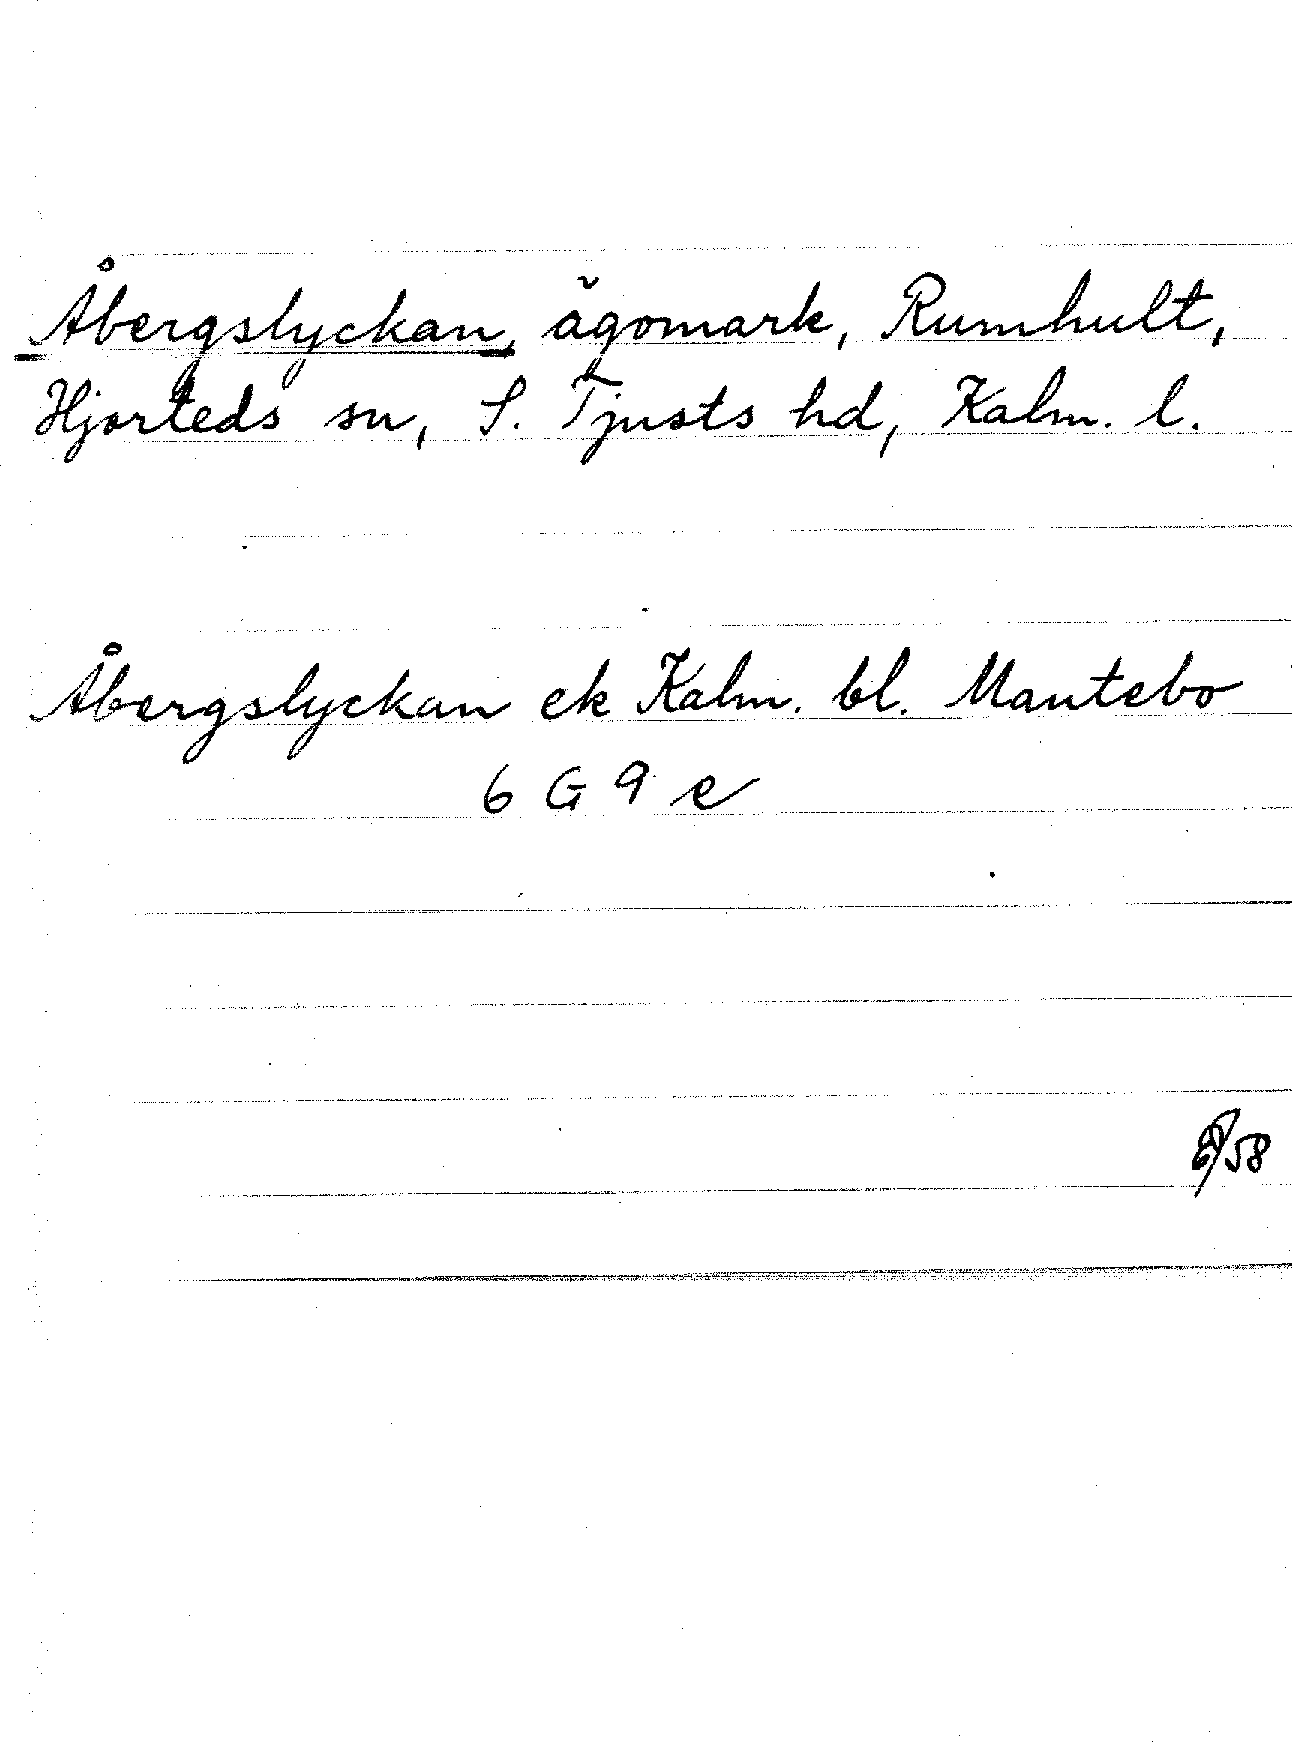 Åbergslyckan, ägomark, Rumhult,
Hjorteds sn, S. Tjusts hd, Kalm. l.
Åbergslyckan ek Kalm. bl. Mantebo
6 G 9 e
58